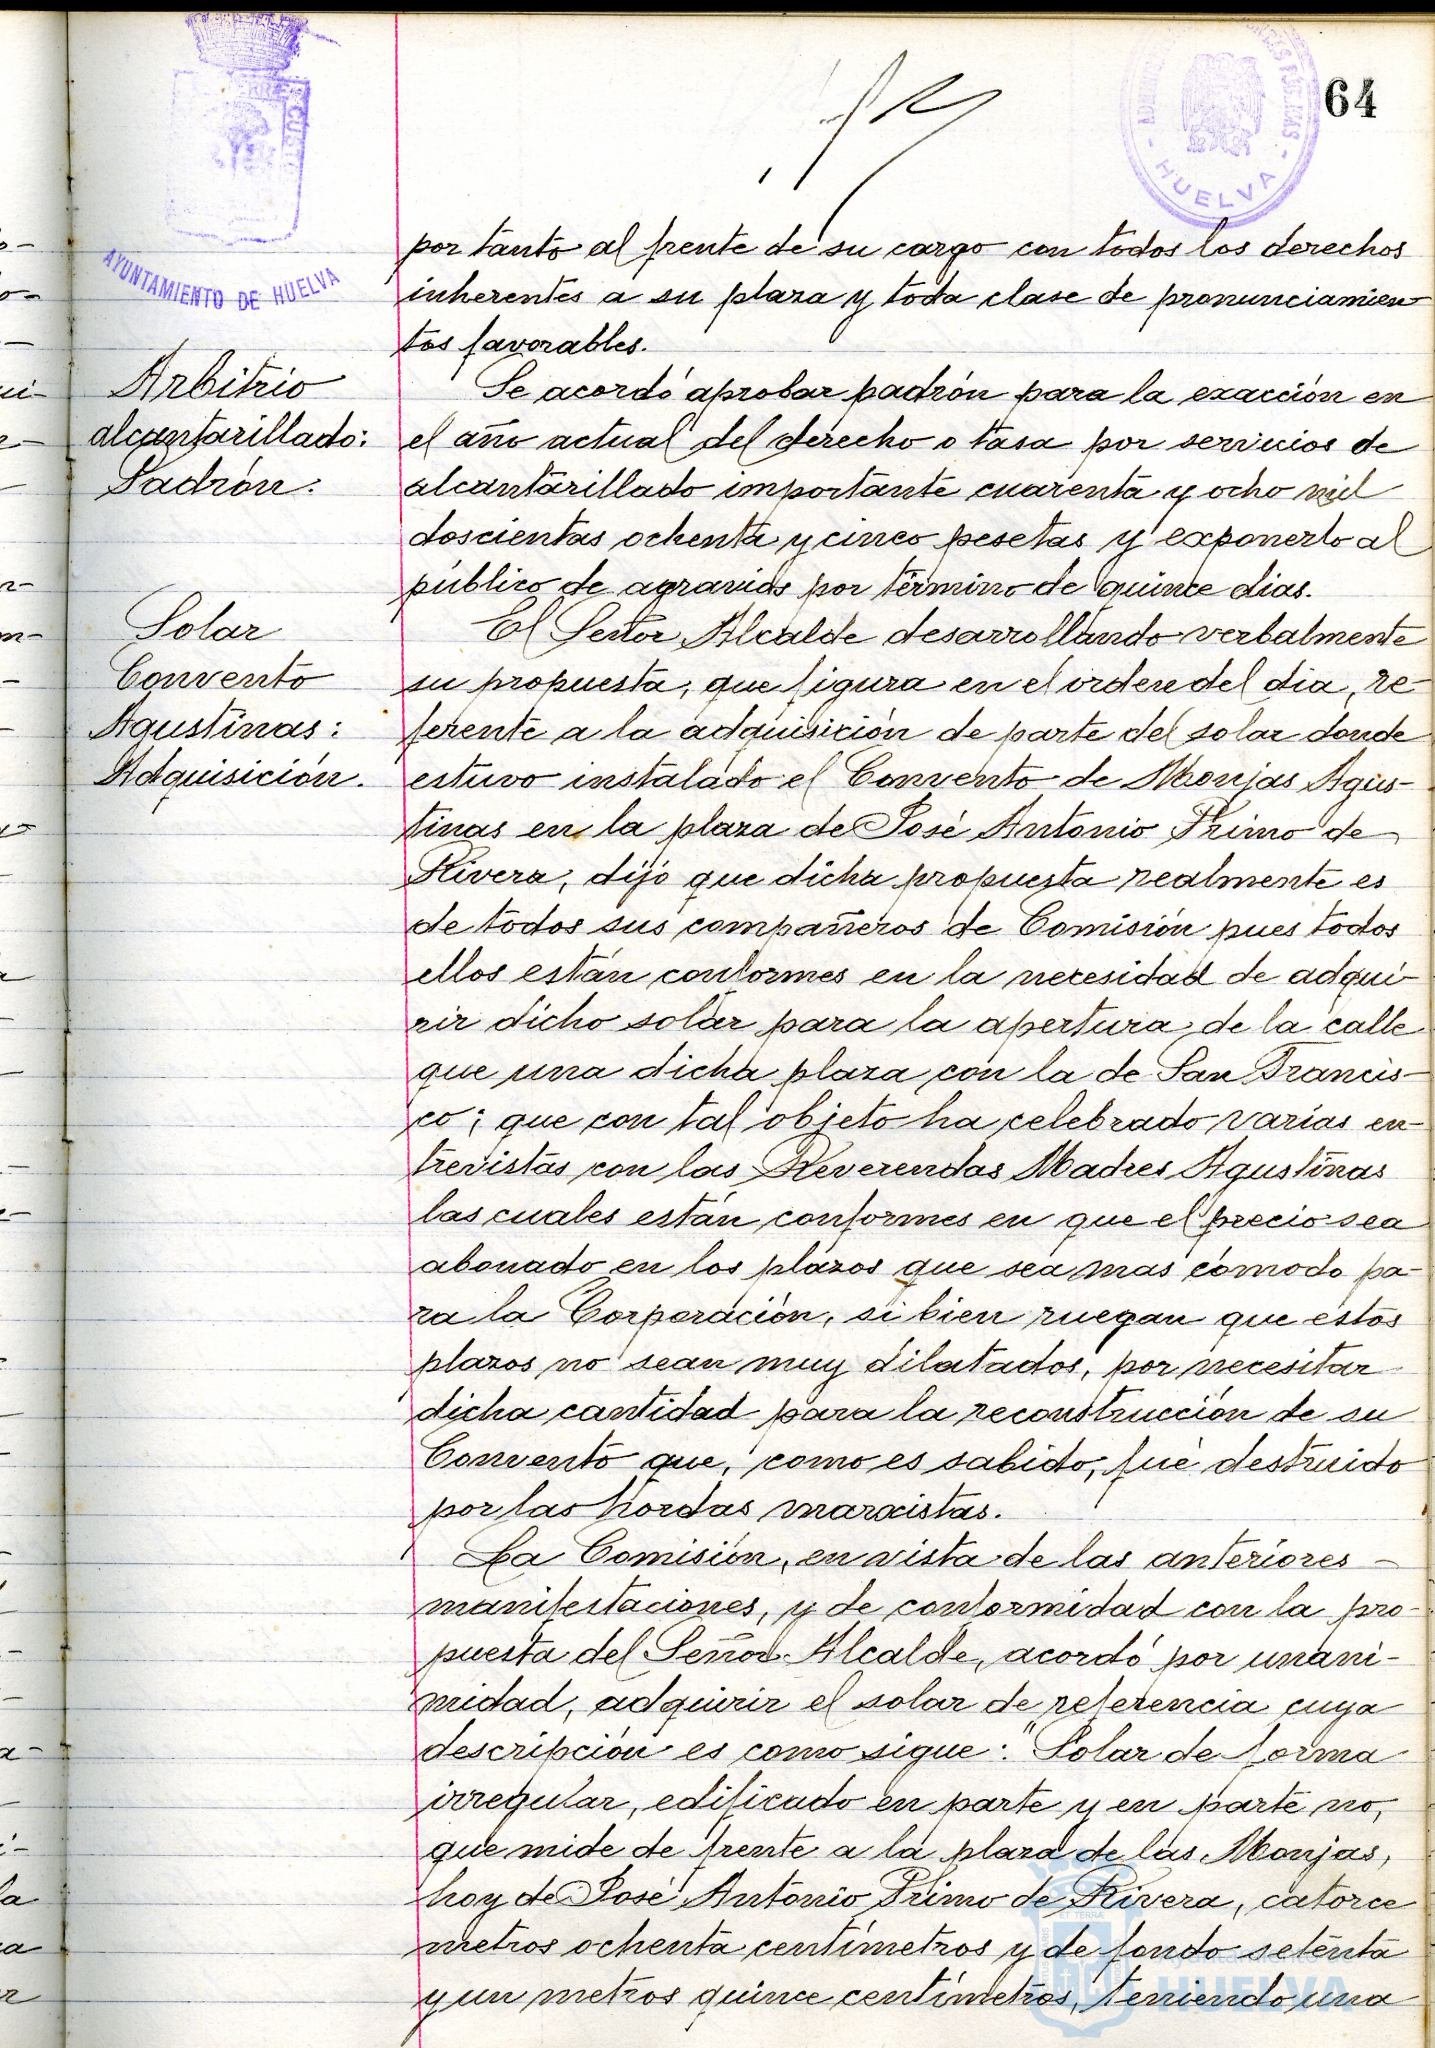 64
AYUNTAMIENTO DE HUELVA
HUELVA
por tanto al frente de su cargo con todos los derechos
inherentes a su plaza y toda clase de pronunciamien
tos favorables.
Arbitrio
alcantarillado:
Padrón.
Se acordó aprobar padrón para la exacción en
el año actual del derecho o tasa por servicios de
alcantarillado importante cuarenta y ocho mil
doscientas ochenta y cinco pesetas y exponerlo al
público de agravios por término de quince dias.
Solar
Convento
Agustinas:
Adquisición.
El Señor Alcalde desarrollando verbalmente
su propuesta, que figura en el orden del dia, re-
ferente a la adquisición de parte del solar donde
estuvo instalado el Convento de Monjas Agus-
tinas en la plaza de José Antonio Primo de
Rivera, dijo que dicha propuesta realmente es
de todos sus compañeros de Comisión pues todos
ellos están conformes en la necesidad de adqui-
rir dicho solar para la apertura de la calle
que una dicha plaza con la de San Francis-
co; que con tal objeto ha celebrado varias en-
trevistas con las Reverendas Madres Agustinas
las cuales están conformes en que el precio sea
abonado en los plazos que sea mas cómodo pa-
ra la Corporación, si bien ruegan que estos
plazos no sean muy dilatados, por necesitar
dicha cantidad para la reconstrucción de su
Convento que, como es sabido, fué destruido
por las hordas marxistas.
La Comisión, en vista de las anteriores
manifestaciones, y de conformidad con la pro-
puesta del Señor Alcalde, acordó por unani-
midad, adquirir el solar de referencia cuya
descripción es como sigue: "Solar de forma
irregular, edificado en parte y en parte no,
que mide de frente a la plaza de las Monjas,
hoy de José Antonio Primo de Rivera, catorce
metros ochenta centímetros y de fondo setenta
y un metros quince centímetros, teniendo una
Ayuntamiento de
HUELVA